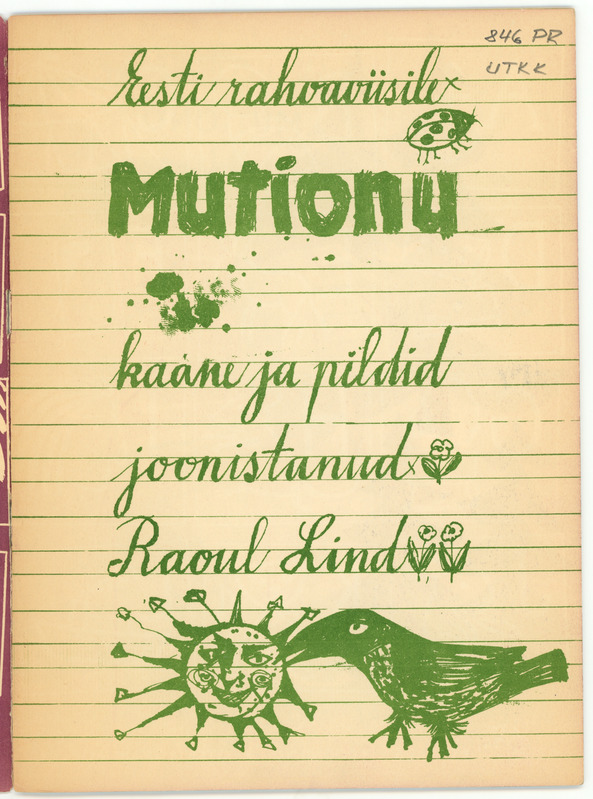 846 PR
UTKK
Eesti rahvaviisile
Mutionu
kaane ja pildid
joonistanud
Raoul Lind